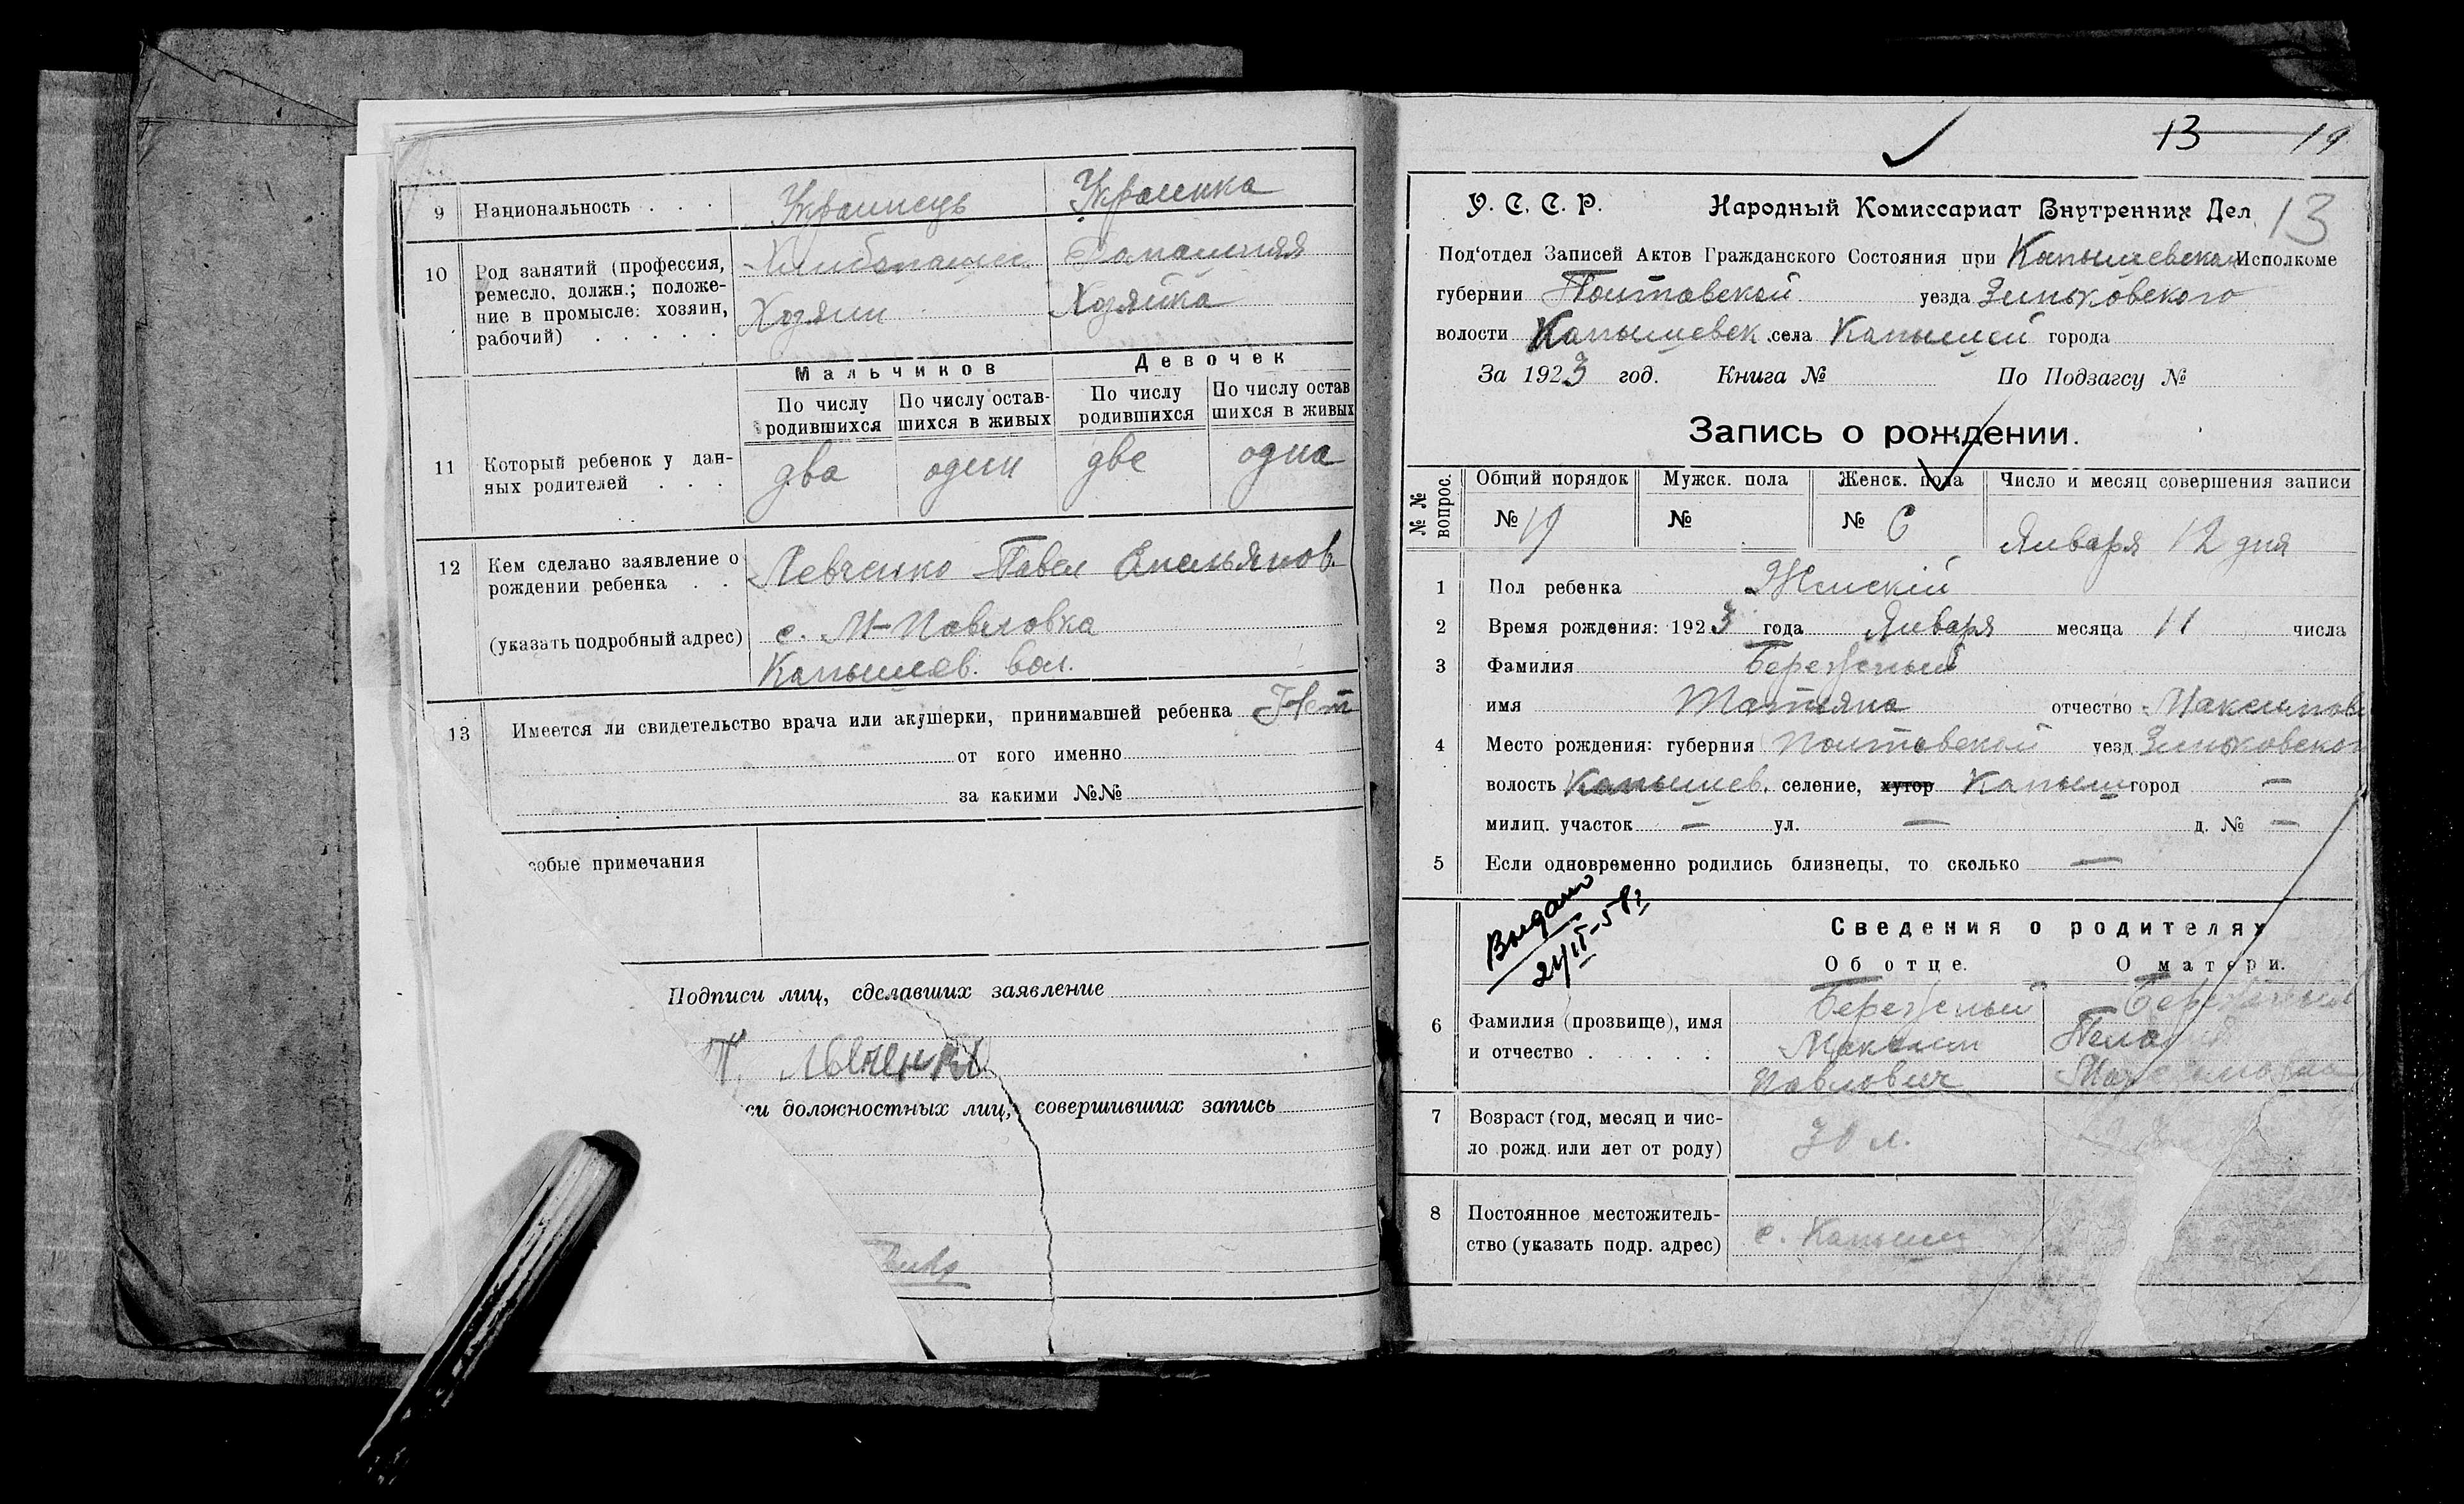 9 Национальность . . . Украинець Украинка
10 Род занятий (профессия, Хлибопашец Домашняя
ремесло, должн.; положе-
ние в промысле: хозяин, Хозяин Хозяйка
рабочий) . . . . .
Мальчиков Девочек
По числу родившихся По числу оставшихся в живых По числу родившихся По числу оставшихся в живых
11 Который ребенок у дан-
ных родителей . . . два один две одна
12 Кем сделано заявление о
рождении ребенка . . Левченко Павел Емельянов.
(указать подробный адрес) с. М-Павловка
Капышев. вол.
13 Имеется ли свидетельство врача или акушерки, принимавшей ребенка Нет
от кого именно
за какими №№
собые примечания
Подписи лиц, сделавших заявление
П.
си должностных лиц, совершивших запись
13 19
У. С. С. Р. Народный Комиссариат Внутренних Дел 13
Под'отдел Записей Актов Гражданского Состояния при Капышевском Исполкоме
губернии Полтавской уезда Зиньковского
волости Капышевск села Капышей города
За 1923 год. Книга № По Подзагсу №
Запись о рождении.
№№ вопрос. Общий порядок Мужск. пола Женск. пола Число и месяц совершения записи
№ 19 № № 6 Января 12 дня
1 Пол ребенка Женскій
2 Время рождения: 1923 года Января месяца 11 числа
3 Фамилия Бережный
имя Татияна отчество Максимов
4 Место рождения: губерния Полтавской уезд Зиньковского
волость Капышев. селение, хутор Капыш город —
милиц. участок — ул. — д. № —
5 Если одновременно родились близнецы, то сколько —
Выдано
21/II-58
Сведения о родителях
Об отце. О матери.
6 Фамилия (прозвище), имя Бережный Бережный
и отчество . . . . . Максим
Павлович
7 Возраст (год, месяц и чис-
ло рожд. или лет от роду) 30 л.
8 Постоянное местожитель-
ство (указать подр. адрес) с. Капыши